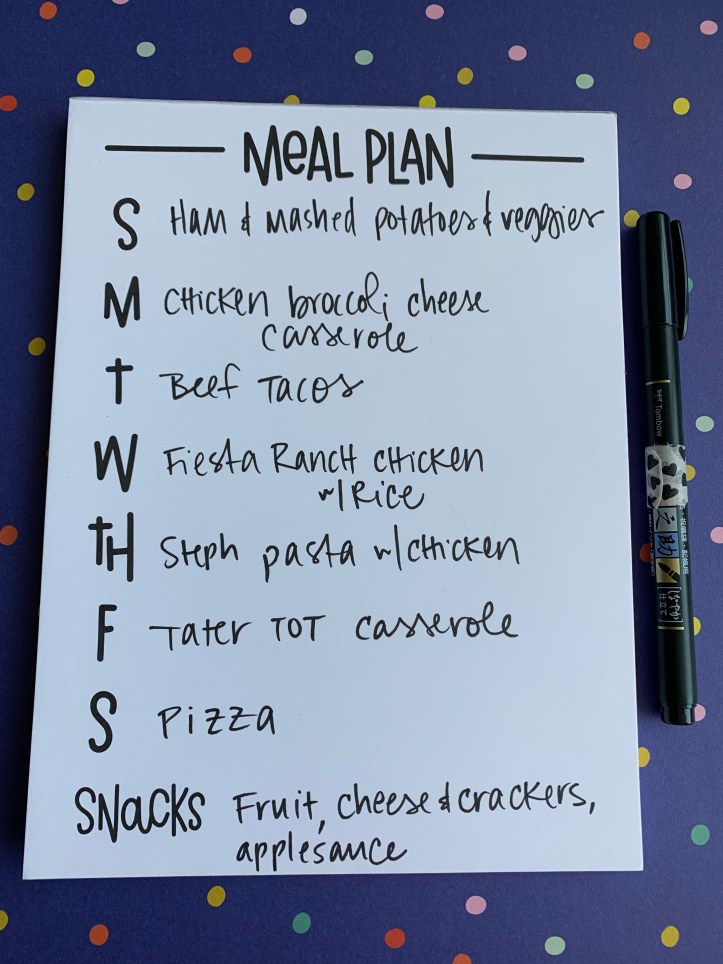 MEAL PLAN
S Ham & mashed potatoes & veggies
M Chicken broccoli cheese
casserole
T Beef Tacos
W Fiesta Ranch Chicken
w/ Rice
TH Steph pasta w/ chicken
F Tater TOT casserole
S Pizza
SNACKS Fruit, cheese & crackers,
applesauce
Tombow